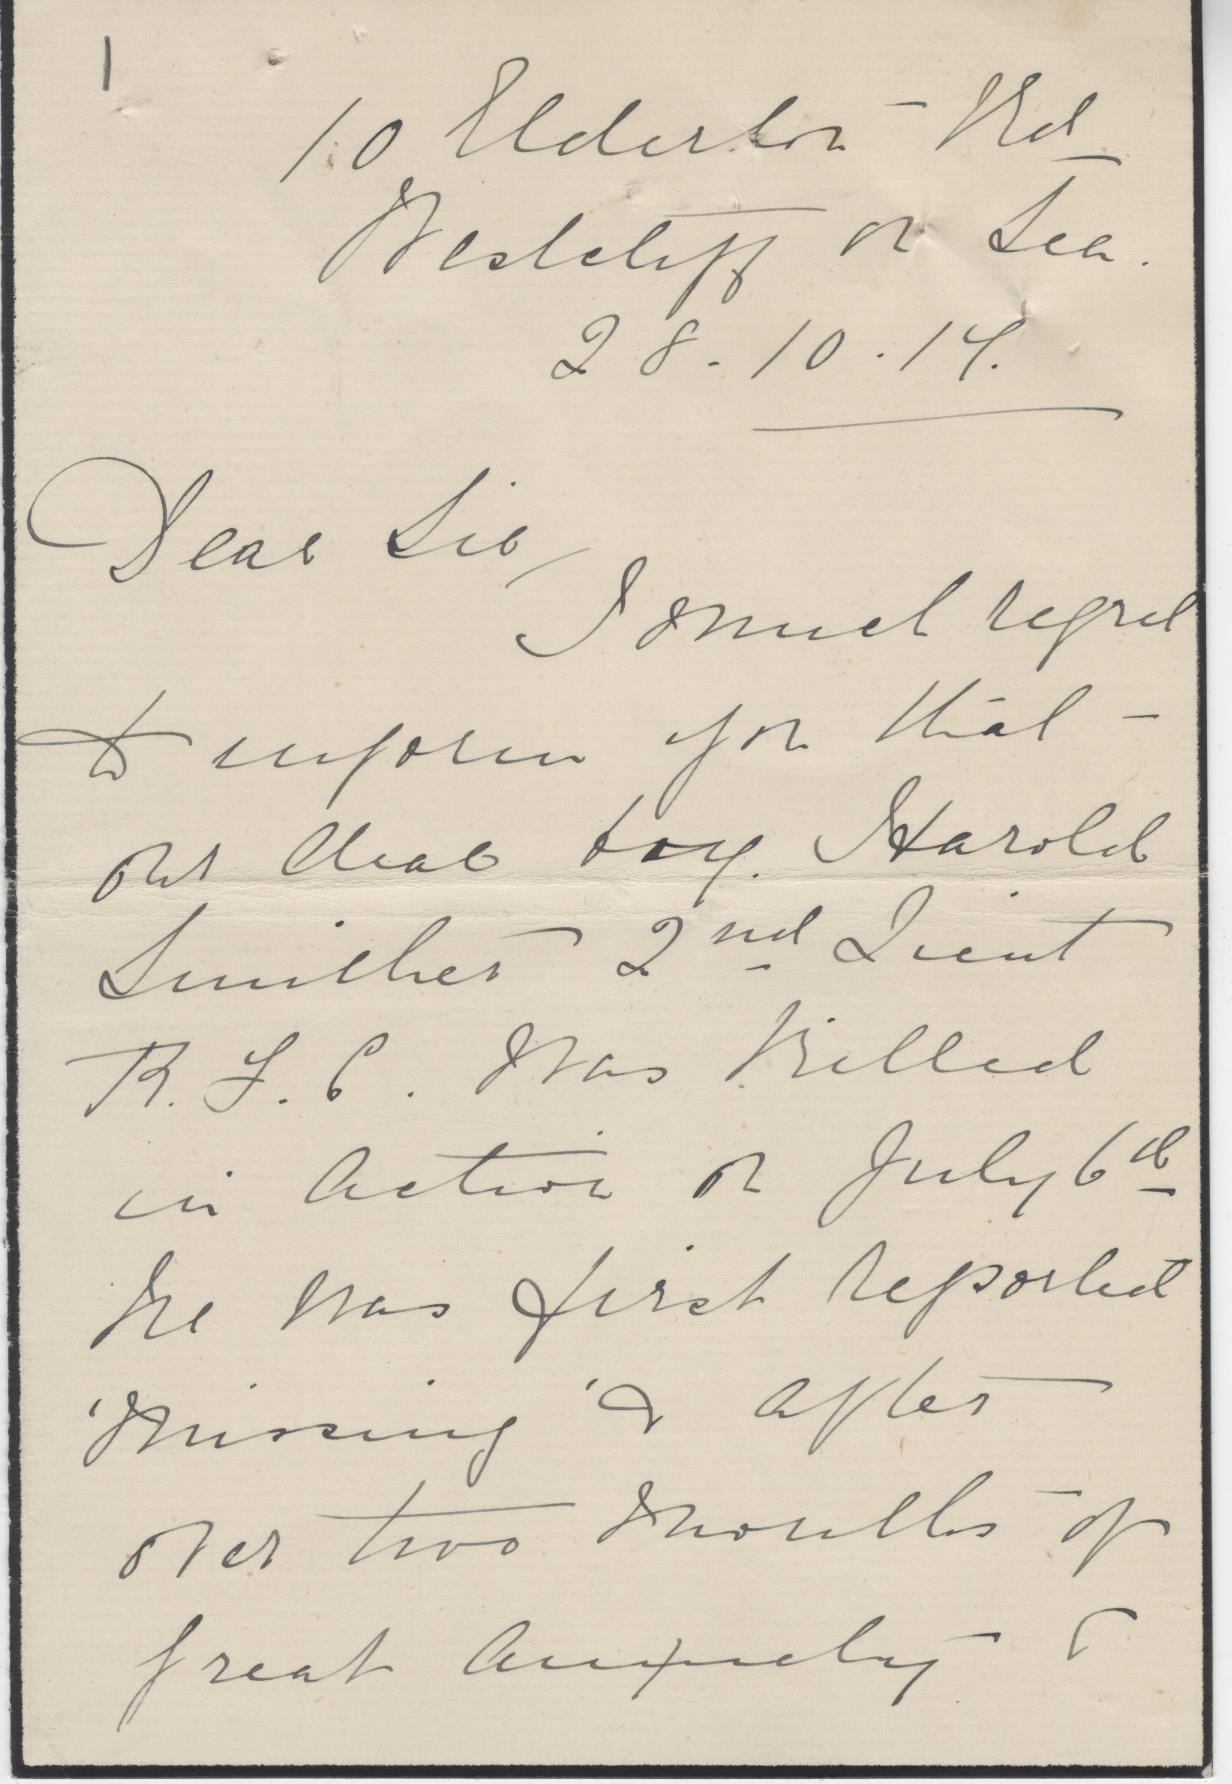 1
10 Elderton Rd
Westcliff on Sea.
28.10.17.
Dear Sir,
I much regret
to inform you that
our dear boy. Harold
Smither 2nd Lieut
R.F.C. was killed
in action on July 6th
He was first reported
'Missing' & after
over two months of
great anxiety &